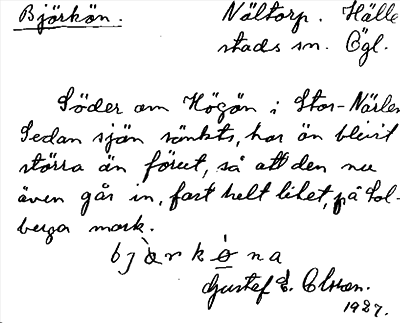 Björkön. Nältorp. Hälle
stads sn. Ögl.
Söder om Högön i Stor-Närlen
Sedan sjön sänkts, har ön blivit
större än förut, så att den nu
även går in, fast helt litet, på Sol-
berga mark.
bjòrkó̱na
Gustaf E. Olsson.
1927.